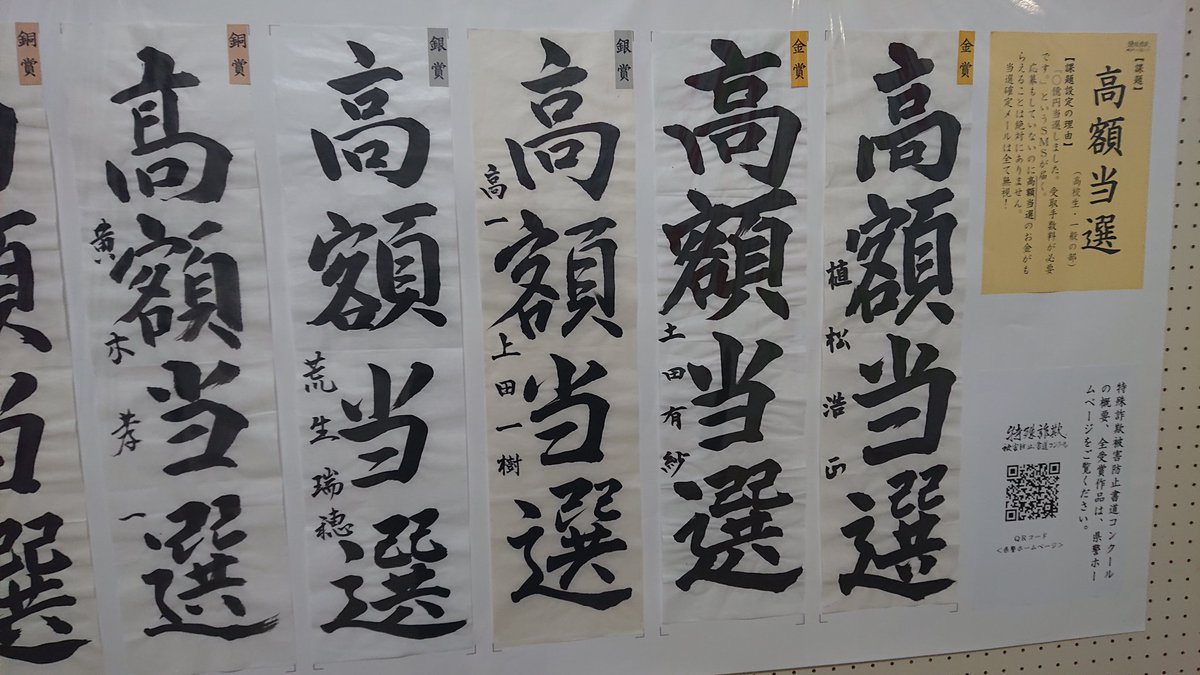 【課題】
高額当選
(高校生・一般の部)
【課題設定の理由】
「〇億円当選しました。受取手数料が必要
です。」というSMSが届く。
応募もしていないのに高額当選のお金がも
らえることは絶対にありません。
当選確定メールは全て無視!
特殊詐欺被害防止書道コンクール
の概要、全受賞作品は、県警ホー
ムページをご覧ください。
特殊詐欺
被害防止書道コンクール
QRコード
<県警ホームページ>
金賞
高額当選
植松浩正
金賞
高額当選
土田有紗
銀賞
高額当選
高一 上田一樹
銀賞
高額当選
荒生瑞穂
銅賞
高額当選
黄木孝一
銅賞